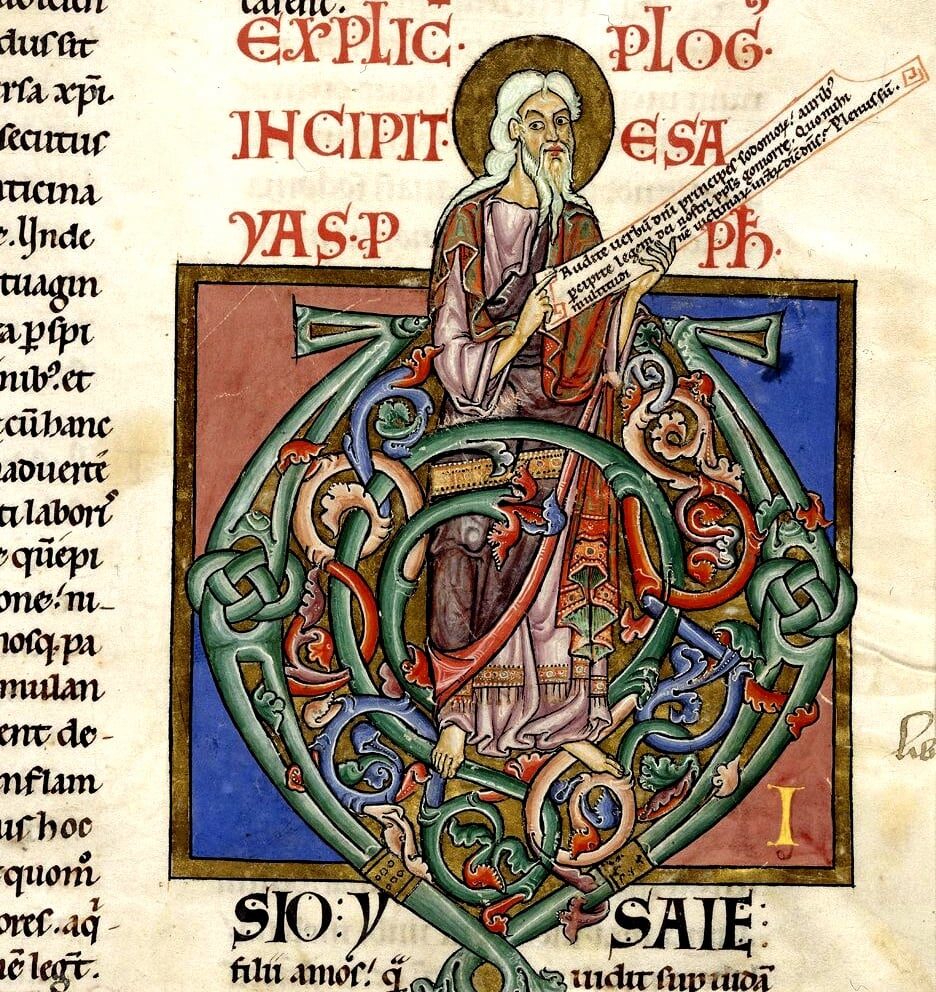 dussit
rsa xp̄i.
secutus
ticina
e. Unde
tuagin
a ꝑspi
nib⁹. et
cū hanc
aduertē
ti labori
e quē epi
one! ni-
nosq. pa
mulan
ent de-
nflam
us hoc
quom̄
ores. aq̄-
ē legt̄.
EXPLIC· PLOG̅·
INCIPIT· ESA
YAS·P PH̅·
Audite uerbū dn̄i principes sodomoꝝ! aurib⁹
pcipite legem dei nostri ppl̄s gomorre. Quo mihi
multitudi nē uictimaꝝ urāꝝ dic̄ dn̄s? Plenus sū.
V
I
SIO: Y SAIE:
filii amos! q̄ uidit sup iudā